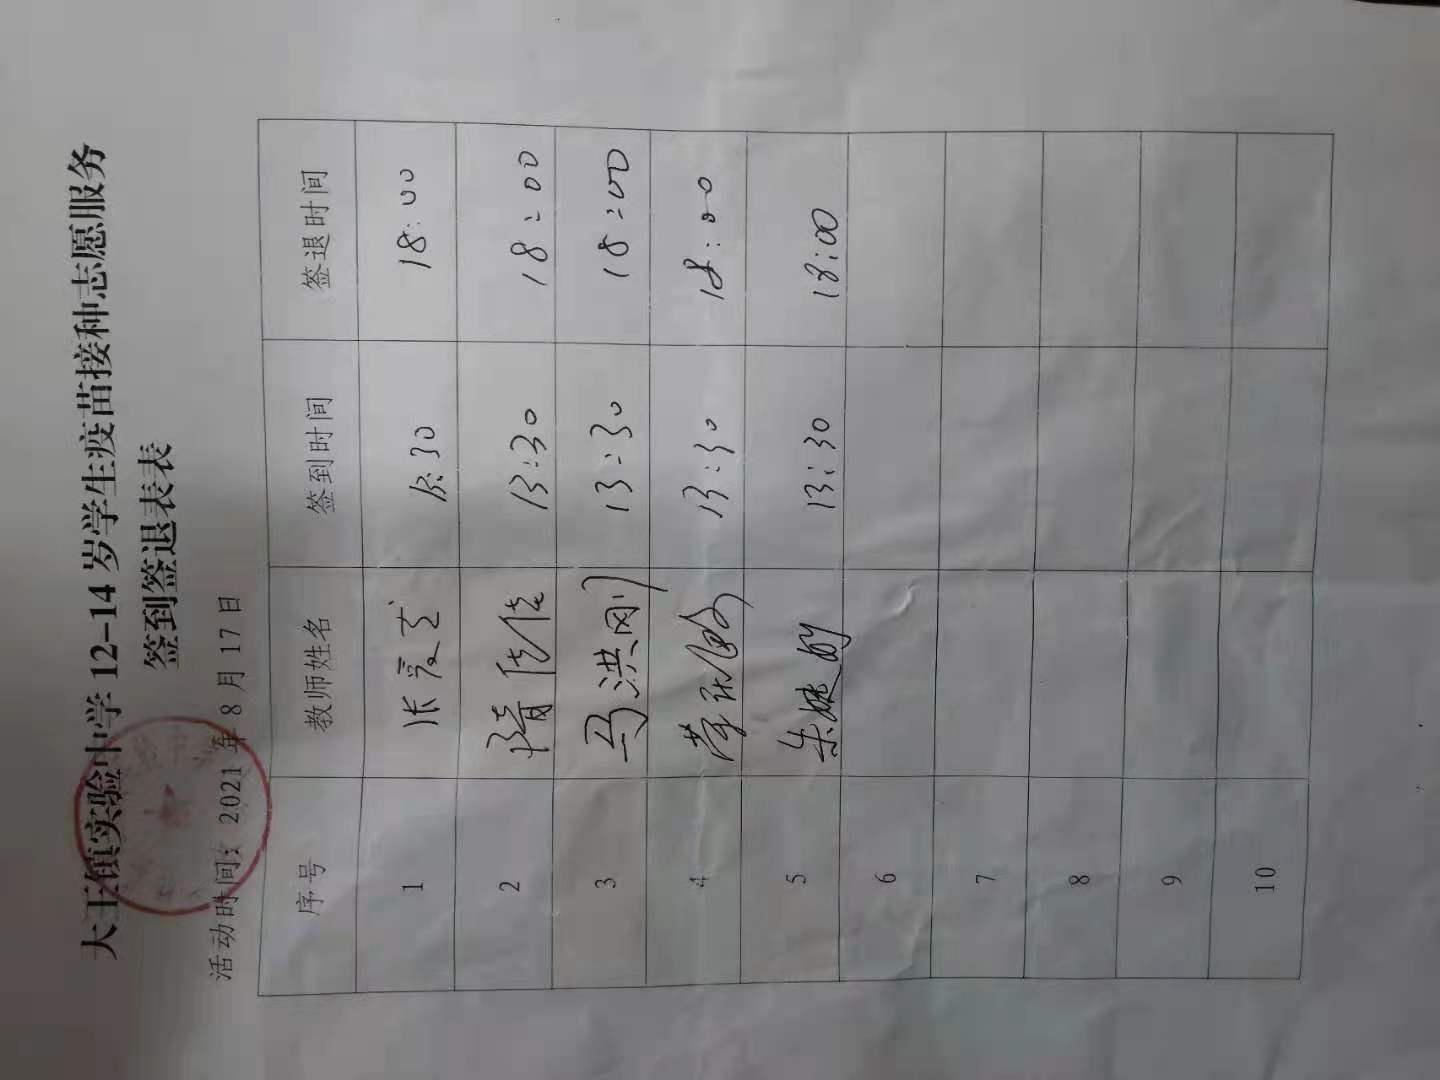 大王镇实验中学 12-14 岁学生疫苗接种志愿服务
签到签退表表
活动时间：2021 年 8 月 17 日
序号 教师姓名 签到时间 签退时间
1 张爱芝 13:30 18:00
2 隋佳佳 13:30 18:00
3 马洪刚 13:30 18:00
4 13:30 18:00
5 朱 13:30 18:00
6
7
8
9
10